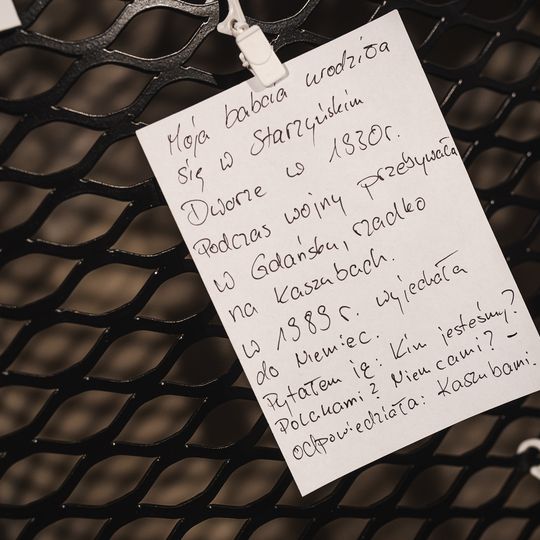 Moja babcia urodziła
się w Starzyńskim
Dworze w 1930r.
Podczas wojny przebywała
w Gdańsku, rzadko
na Kaszubach.
w 1989 r. wyjechała
do Niemiec.
Pytałem ją: Kim jesteśmy?
Polakami? Niemcami? -
odpowiedziała: Kaszubami.